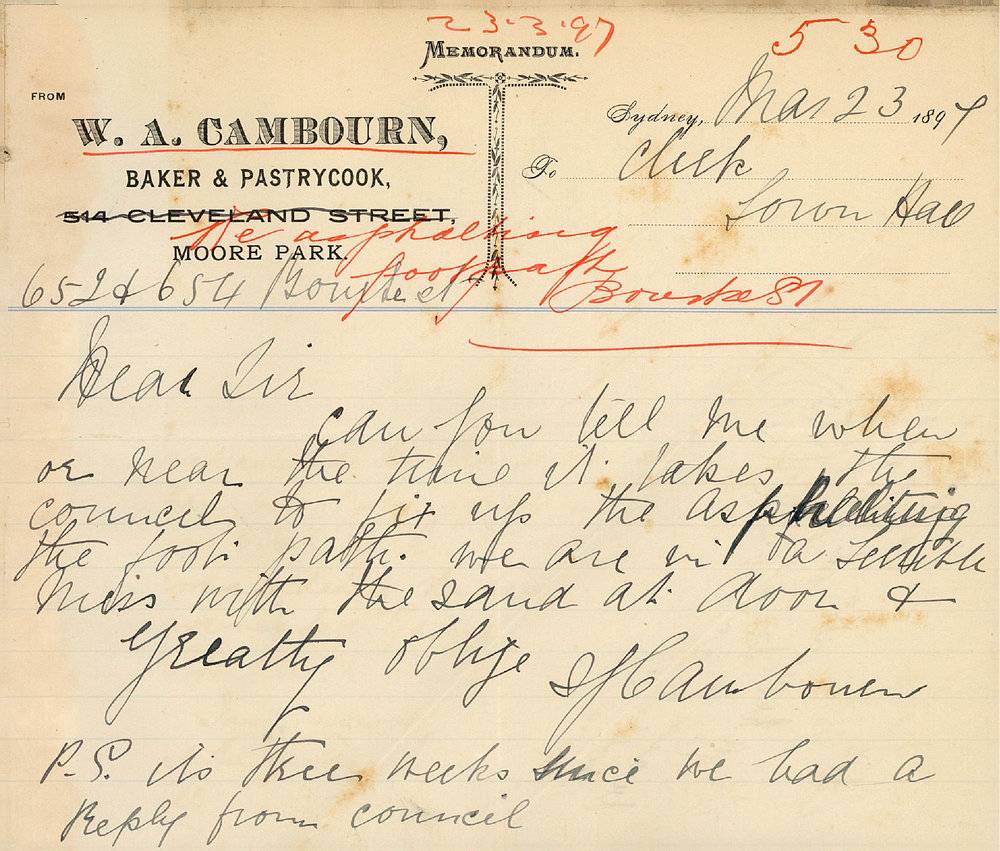 23.3.97
530
MEMORANDUM.
FROM
Sydney, Mar 23 1897
W. A. CAMBOURN,
To Clerk
BAKER & PASTRYCOOK,
Town Hall
514 CLEVELAND STREET,
Re asphalting
MOORE PARK.
footpath
652 & 654 Bourke st
Bourke St
Dear Sir
can you tell me when
or near the time it takes the
council to fix up the asphalting
the foot path. we are in a terrible
mess with the sand at door &
greatly oblige
Cambourn
P.S. its three weeks since we had a
Reply from council